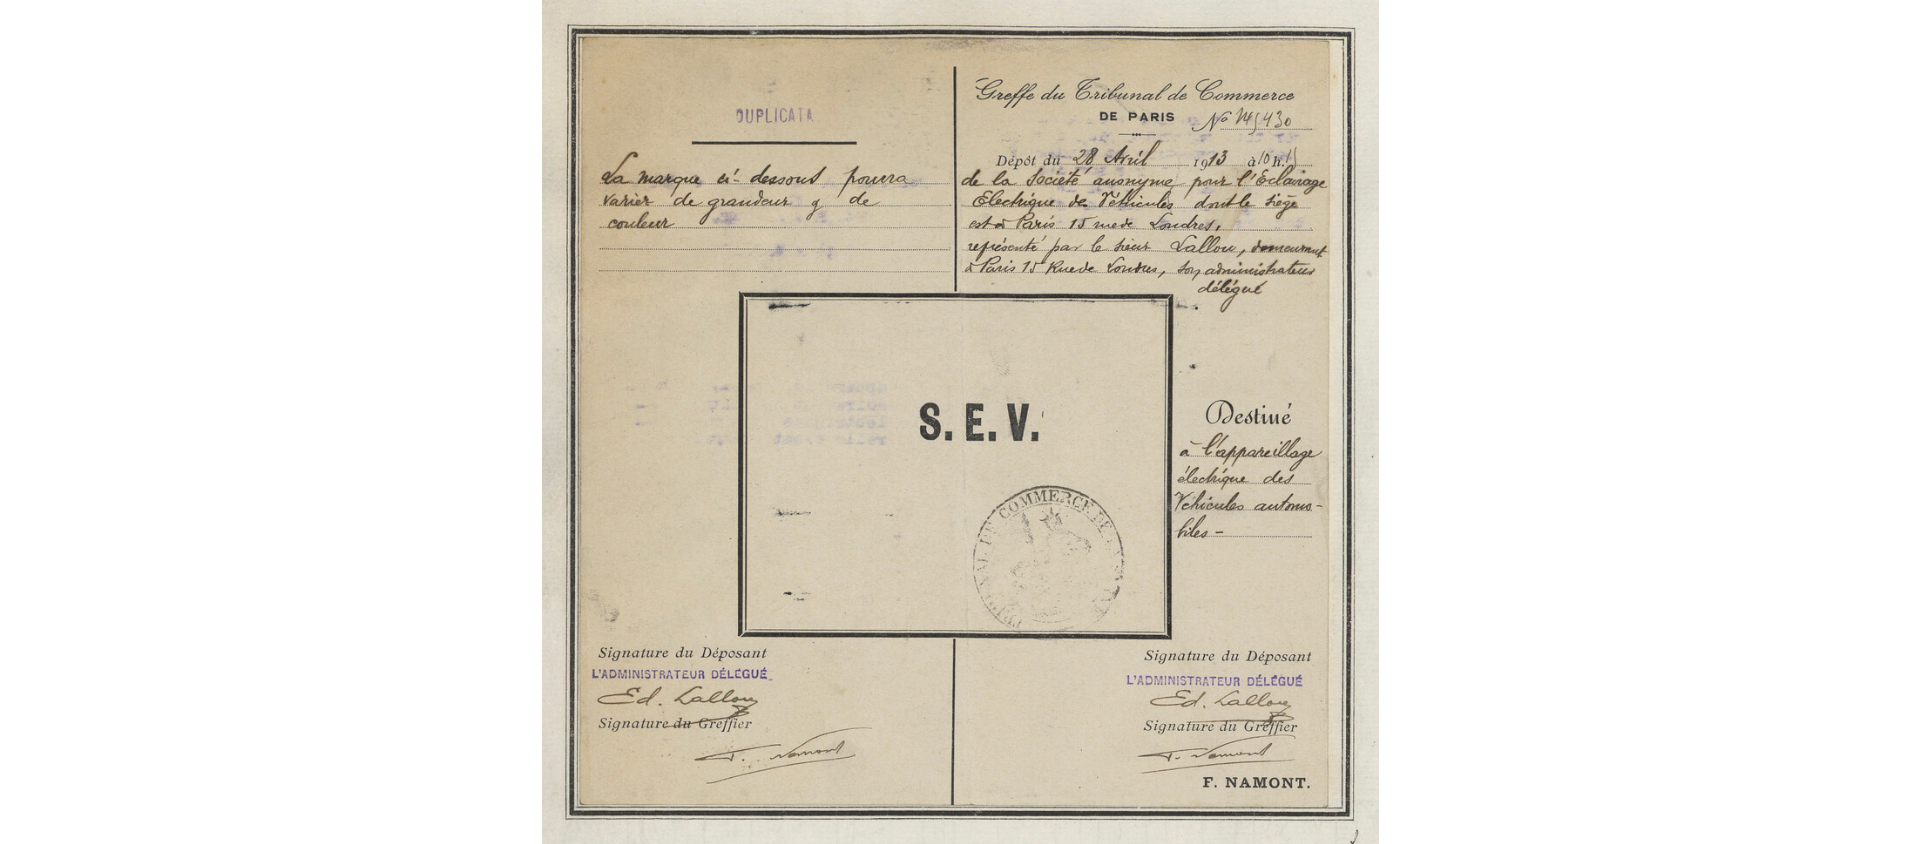 DUPLICATA
La marque ci-dessous pourra
varier de grandeur & de
couleur
Greffe du Tribunal de Commerce
DE PARIS
Dépôt du 28 Avril 1913 à 10 h.
de la Société anonyme pour l'Eclairage
Electrique des Véhicules dont le siège
est à Paris 15 rue de Londres,
représenté par le sieur Lallou, demeurant
à Paris 15 Rue de Londres, son administrateur
délégué
S. E. V.
TRIBUNAL DE COMMERCE DE LA SEINE
Destiné
à l'appareillage
électrique des
Véhicules automo-
biles -
Signature du Déposant
L'ADMINISTRATEUR DÉLÉGUÉ
Ed. Lallou
Signature du Greffier
F. Namont
Signature du Déposant
L'ADMINISTRATEUR DÉLÉGUÉ
Ed. Lallou
Signature du Greffier
F. Namont
F. NAMONT.